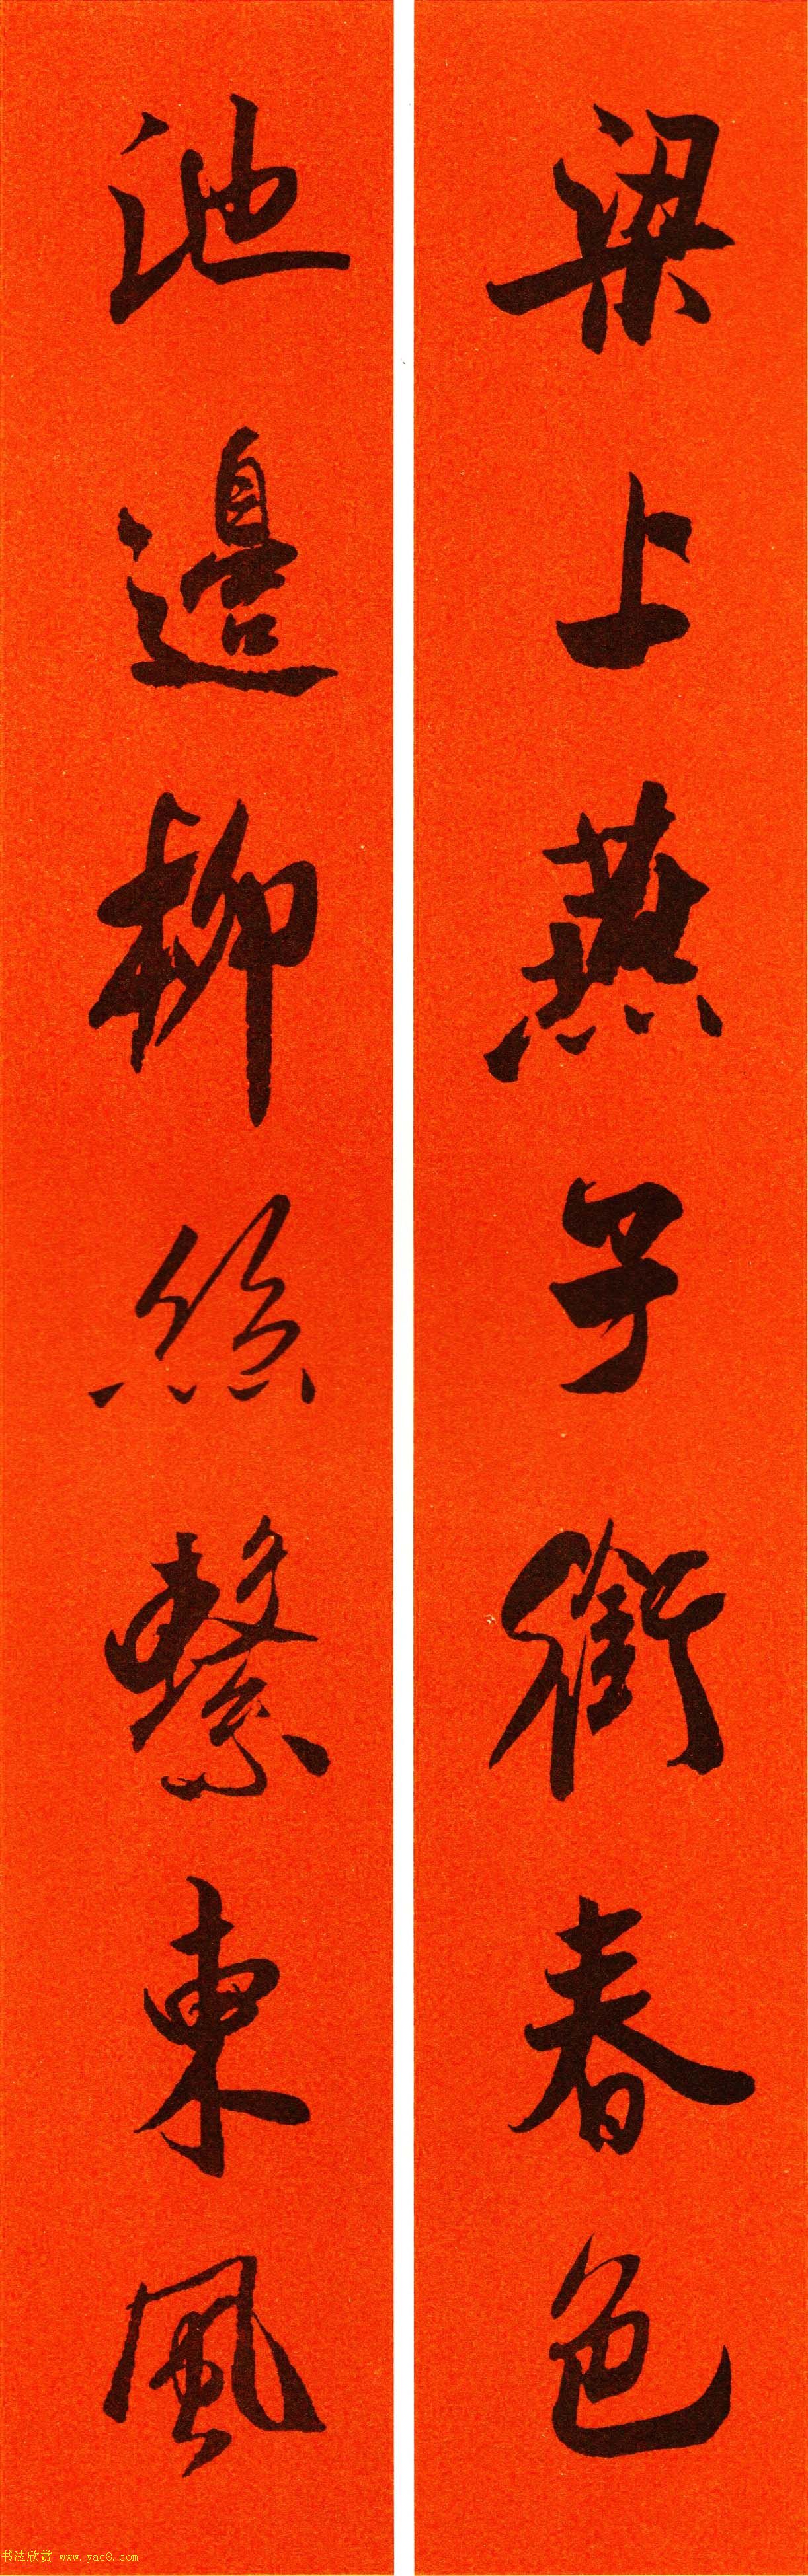 梁上燕子銜春色
池邊柳絲繫東風
书法欣赏 www.yac8.com